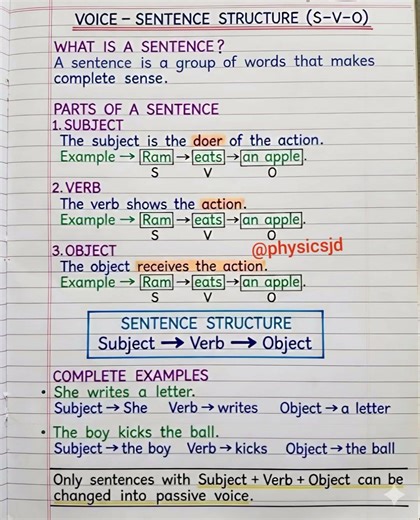 VOICE – SENTENCE STRUCTURE (S-V-O)
WHAT IS A SENTENCE?
A sentence is a group of words that makes
complete sense.
PARTS OF A SENTENCE
1. SUBJECT
The subject is the doer of the action.
Example → Ram → eats → an apple.
S V O
2. VERB
The verb shows the action.
Example → Ram → eats → an apple.
S V O
3. OBJECT
@physicsjd
The object receives the action.
Example → Ram → eats → an apple.
S V O
SENTENCE STRUCTURE
Subject → Verb → Object
COMPLETE EXAMPLES
• She writes a letter.
Subject → She Verb → writes Object → a letter
• The boy kicks the ball.
Subject → the boy Verb → kicks Object → the ball
Only sentences with Subject + Verb + Object can be
changed into passive voice.